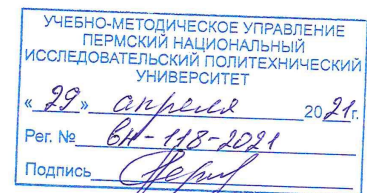 УЧЕБНО-МЕТОДИЧЕСКОЕ УПРАВЛЕНИЕ
ПЕРМСКИЙ НАЦИОНАЛЬНЫЙ
ИССЛЕДОВАТЕЛЬСКИЙ ПОЛИТЕХНИЧЕСКИЙ
УНИВЕРСИТЕТ
«29» апреля 2021г.
Рег. № вн-118-2021
Подпись